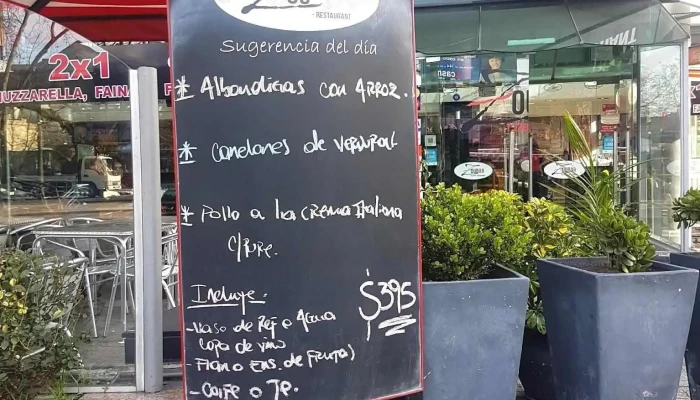 - RESTAURANT
Sugerencia del día
* Albondigas con Arroz.
* Canelones de verdura
* Pollo a la crema Italiana
c/Pure.
Incluye.
$395
- Vaso de Ref o Agua
Copa de vino
- Flan o Ens. de Frutas
- Cafe o Te.
2x1
MUZZARELLA, FAINA